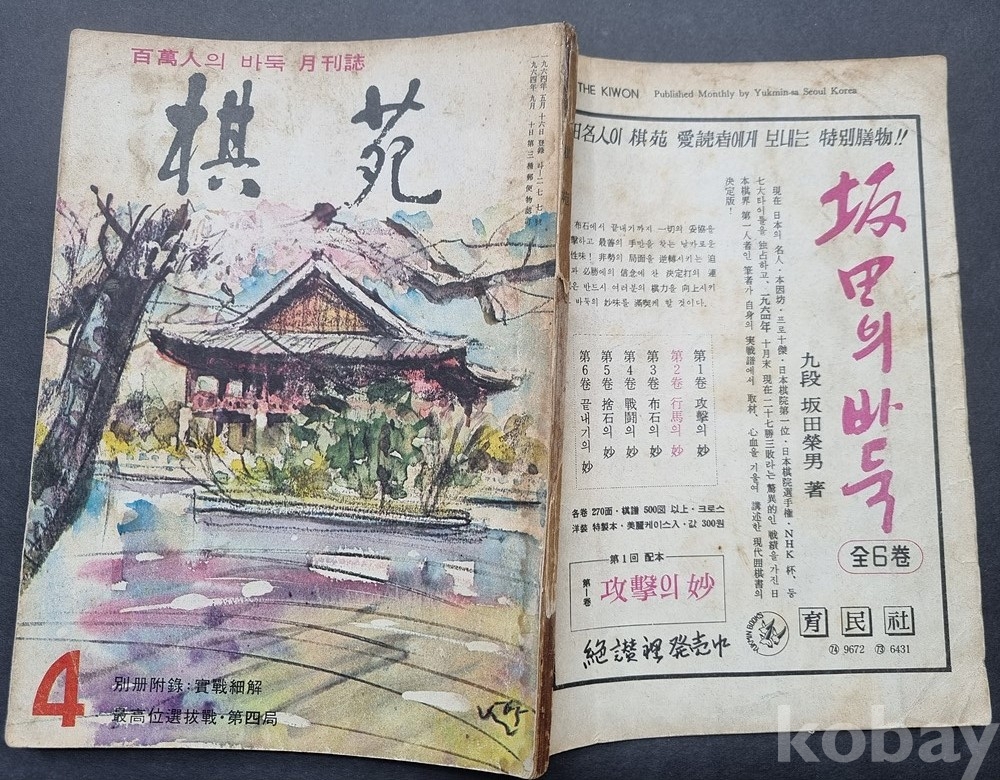 百萬人의 바둑 月刊誌
棋苑
4
別册附錄：實戰細解
最高位選拔戰·第四局
THE KIWON Published Monthly by Yukmin-sa Seoul Korea
田名人이 棋苑 愛読者에게 보내는 特别膳物!!
坂田의 바둑
全6巻
九段 坂田榮男 著
現在 日本의 名人·本因坊·프로十傑·日本棋院第一位·日本棋院選手権·NHK杯、等
七大타이틀을 独占하고、一九六四年 十月末 現在 二十七勝三敗라는 驚異的인 戦績을 가진 日
本棋界 第一人者인 筆者가 自身의 実戦譜에서 取材、心血을 기울여 講述한 現代囲棋書의
決定版！
布石에서 끝내기까지 一切의 妥協을
擊하고 最善의 手만을 찾는 날카로운
性味! 非勢의 局面을 逆轉시키는 迫
과 必勝에의 信念에 찬 決定打의 連
은 반드시 여러분의 棋力을 向上시키
바둑의 妙味를 滿喫케 할 것이다.
第1巻 攻撃의 妙
第2巻 行馬의 妙
第3巻 布石의 妙
第4巻 戦闘의 妙
第5巻 捨石의 妙
第6巻 끝내기의 妙
各巻 270面·棋譜 500図 以上·크로스
洋裝 特製本·美麗케이스入·값 300원
第1回 配本
第1巻 攻擊의 妙
絶讃裡 発売中
YUKMIN BOOKS
育民社
74 9672 73 6431
kobay